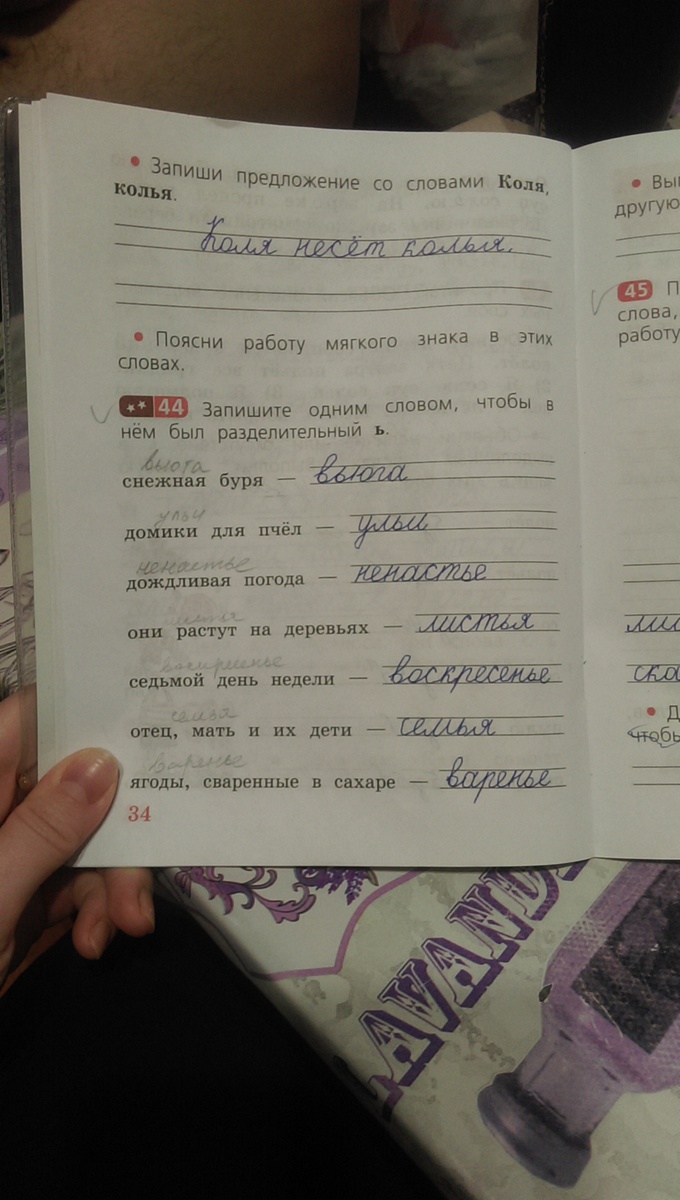 • Запиши предложение со словами Коля,
колья.
Коля несёт колья.
• Поясни работу мягкого знака в этих
словах.
44 Запишите одним словом, чтобы в
нём был разделительный ь.
вьюга
снежная буря — вьюга
ульи
домики для пчёл — ульи
ненастье
дождливая погода — ненастье
они растут на деревьях — листья
седьмой день недели — воскресенье
семья
отец, мать и их дети — семья
варенье
ягоды, сваренные в сахаре — варенье
34
•
другую
45 П
слова,
работу
ска
• Д
чтобы
AVAND